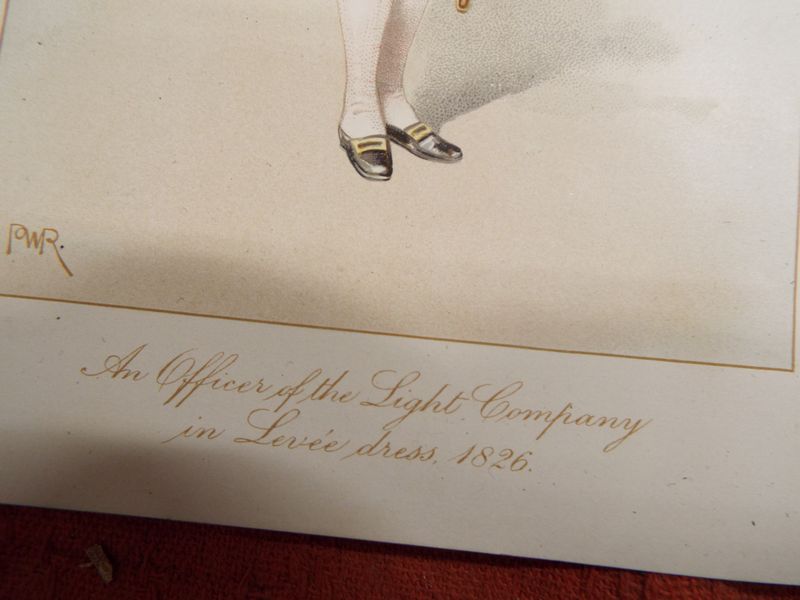 PWR.
An Officer of the Light Company
in Levée dress, 1826.